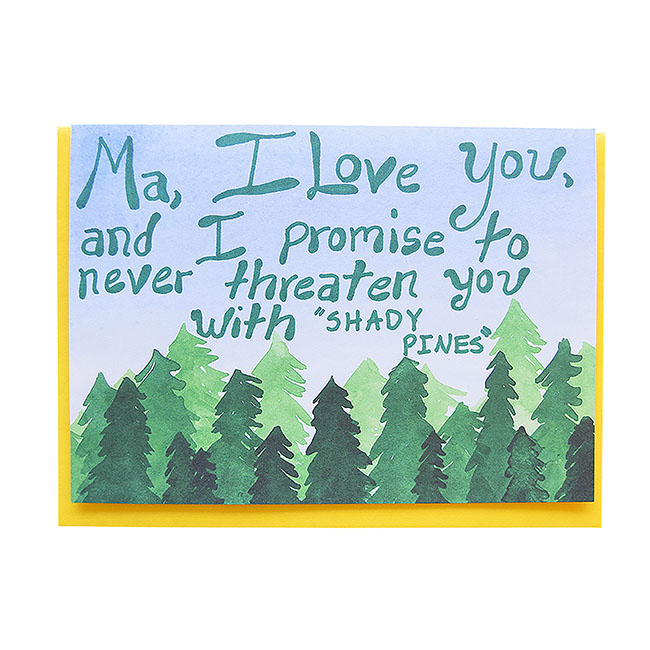 Ma, I Love you,
and I promise to
never threaten you
with "SHADY
PINES"